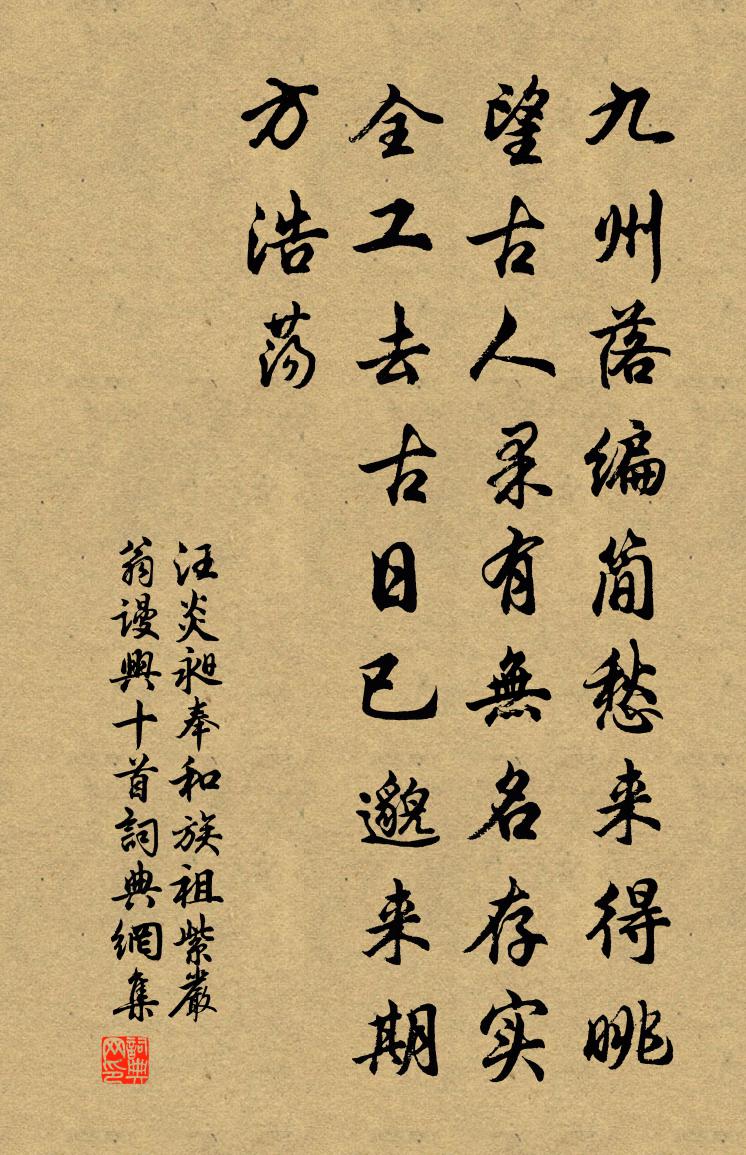 九州落编简愁来得眺
望古人果有無名存实
全工去古日已邈来期
方浩荡
汪炎昶奉和族祖紫巖
翁谩興十首詞典網集
詞典网印